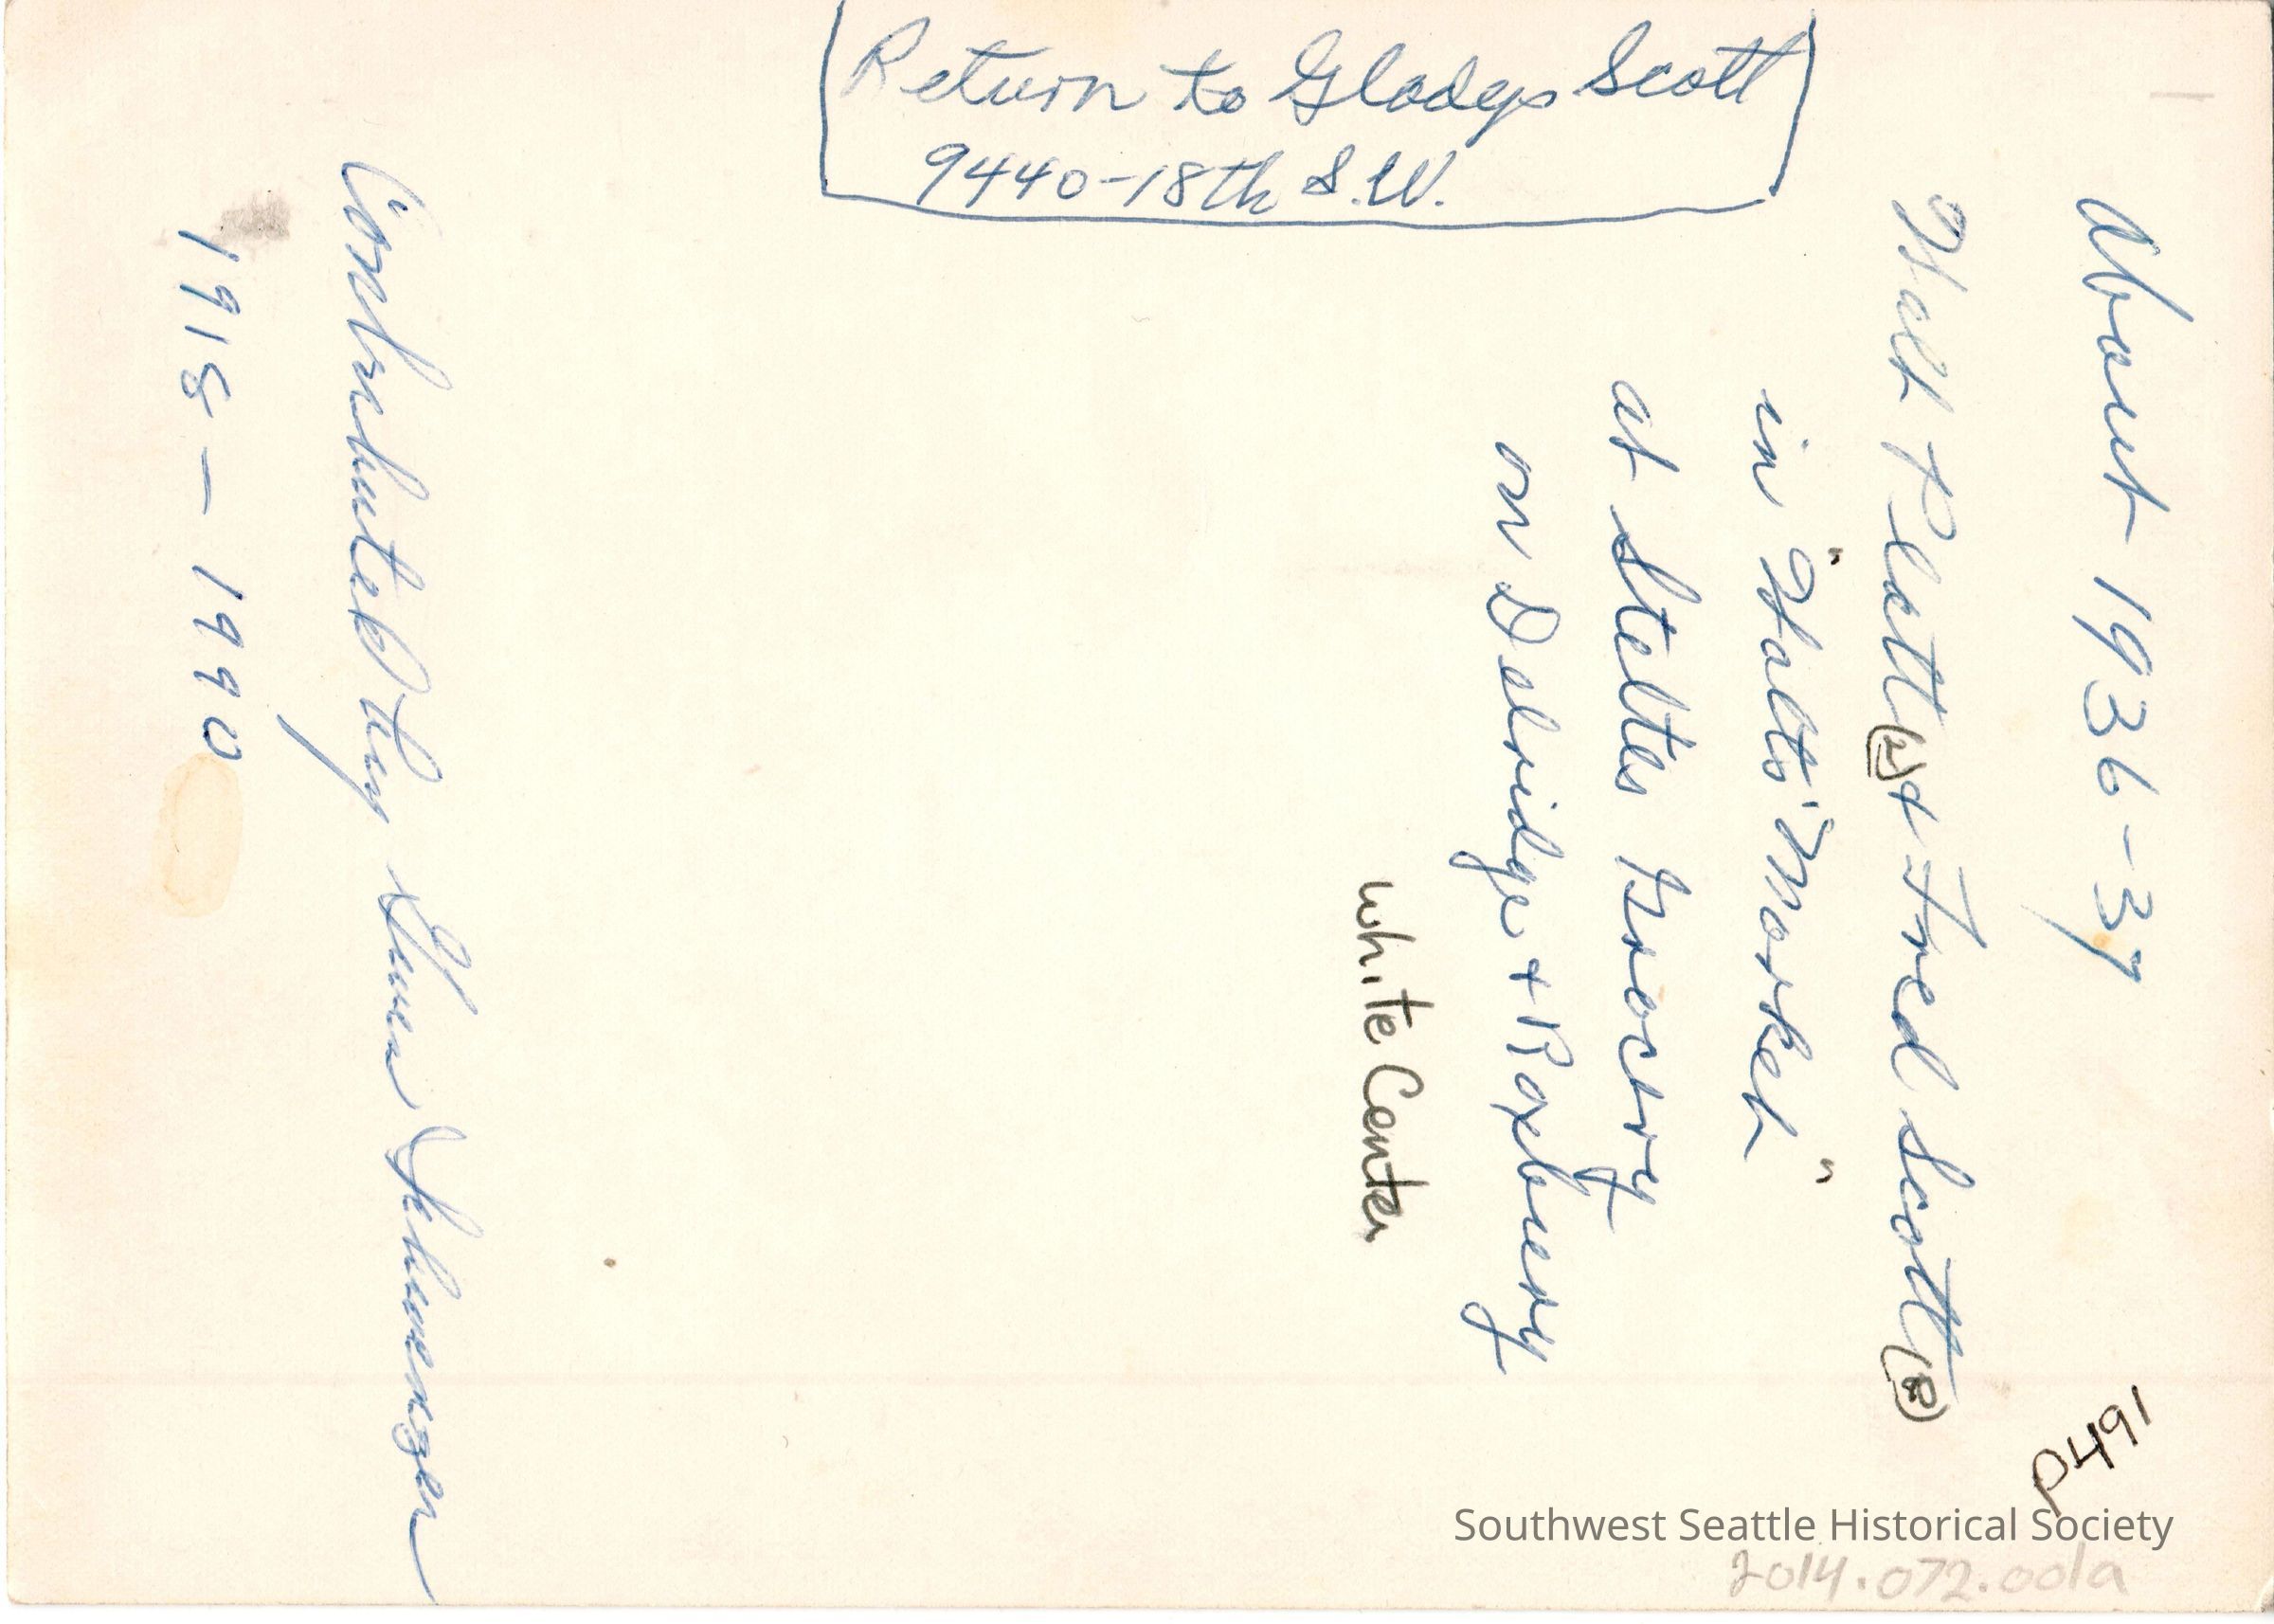 Return to Gladys Scott
9440-18th S.W.
About 1936-37
Walt Plett(L) & Fred Scott(R)
in "Walts' Market"
at Steltes Grocery
on Delridge + Roxbury
White Center
Contributed by Schwenzer
1918 - 1990
P491
Southwest Seattle Historical Society
2014.072.001a